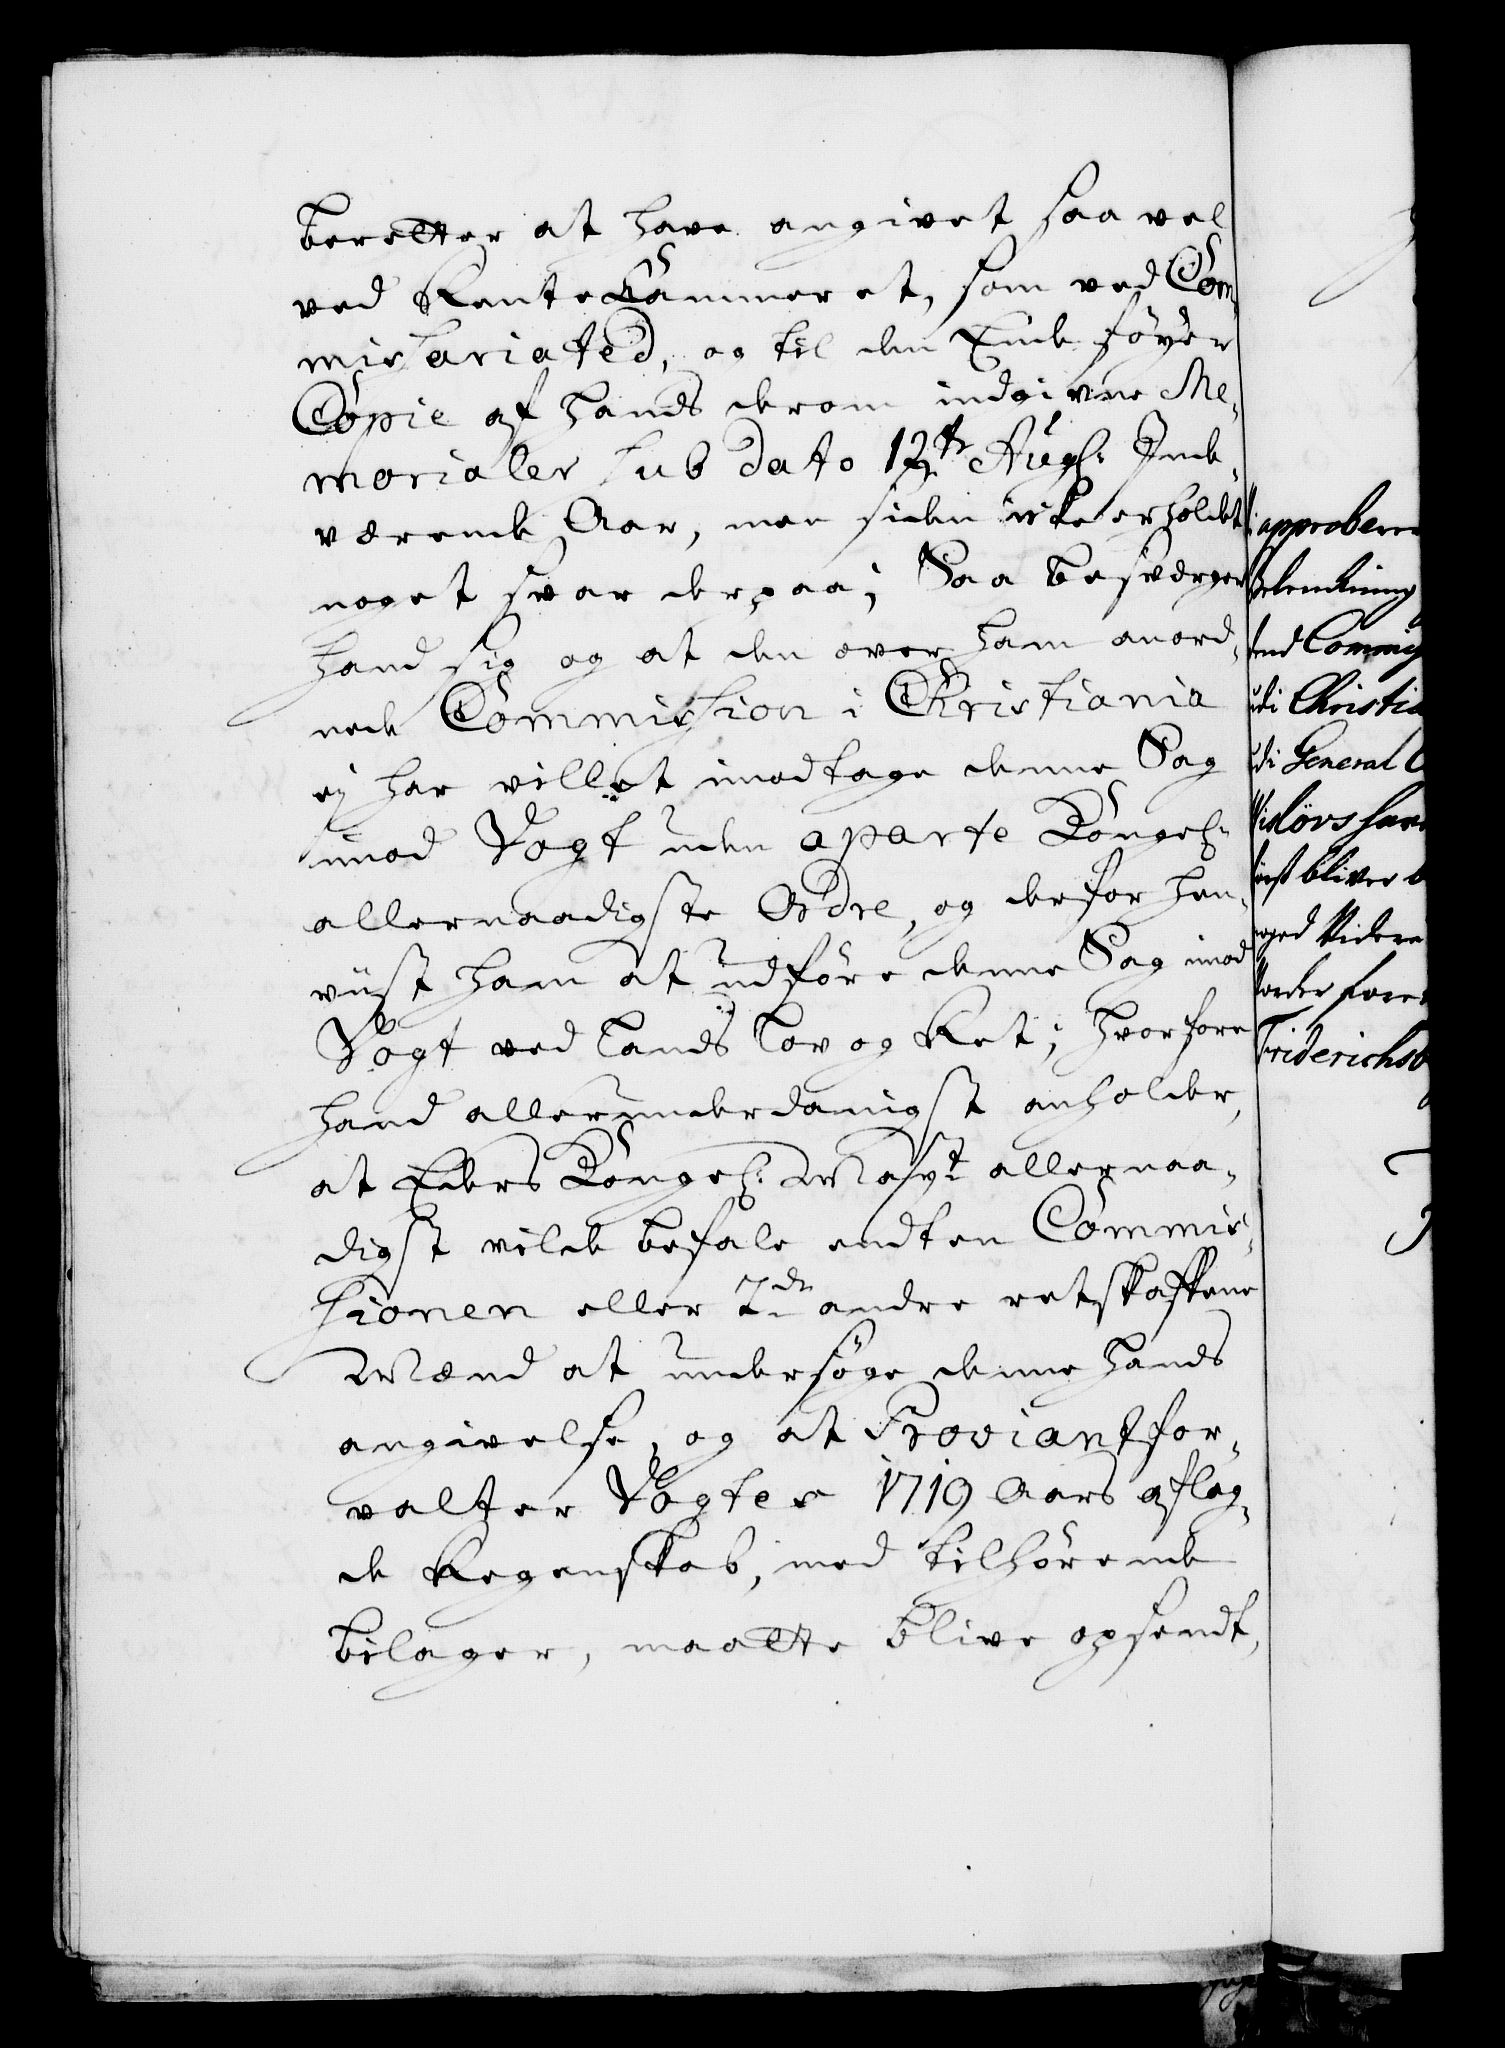 beretter at have angivet saa vel
ved RenteKammeret, som ved Com,
missariated, og til den Ende föyer
Copie af hands derom indgivne Me,
morialer sub dato 12te Augs: Inde,
værende Aar, men siden icke erholdet
noget svar derpaa; Saa besværger
hand sig og at den over ham anord,
nede Commission i Christiania
ej har villet imodtage denne Sag
imod Vogt uden aparte Kongel:
allernaadigste Ordre, og derfor hen,
viist ham at udföre denne Sag imod
Vogt ved Lands Lov og Ret; hvorfore
hand allerunderdanigst anholder,
at Eders Kongel: Mayt allernaa,
digst vilde befale endten Commis,
sionen eller 2de andre retskafne
Mænd at undersöge denne hands
angivelse, og at Proviantfor,
valter Vogtes 1719 Aars aflag,
de Regenskab, med tilhörende
bilager, maatte blive opsendt,
approbere
Betenckning
Commis
udi Christia
udi General C
bliver
videre
Friderichsb